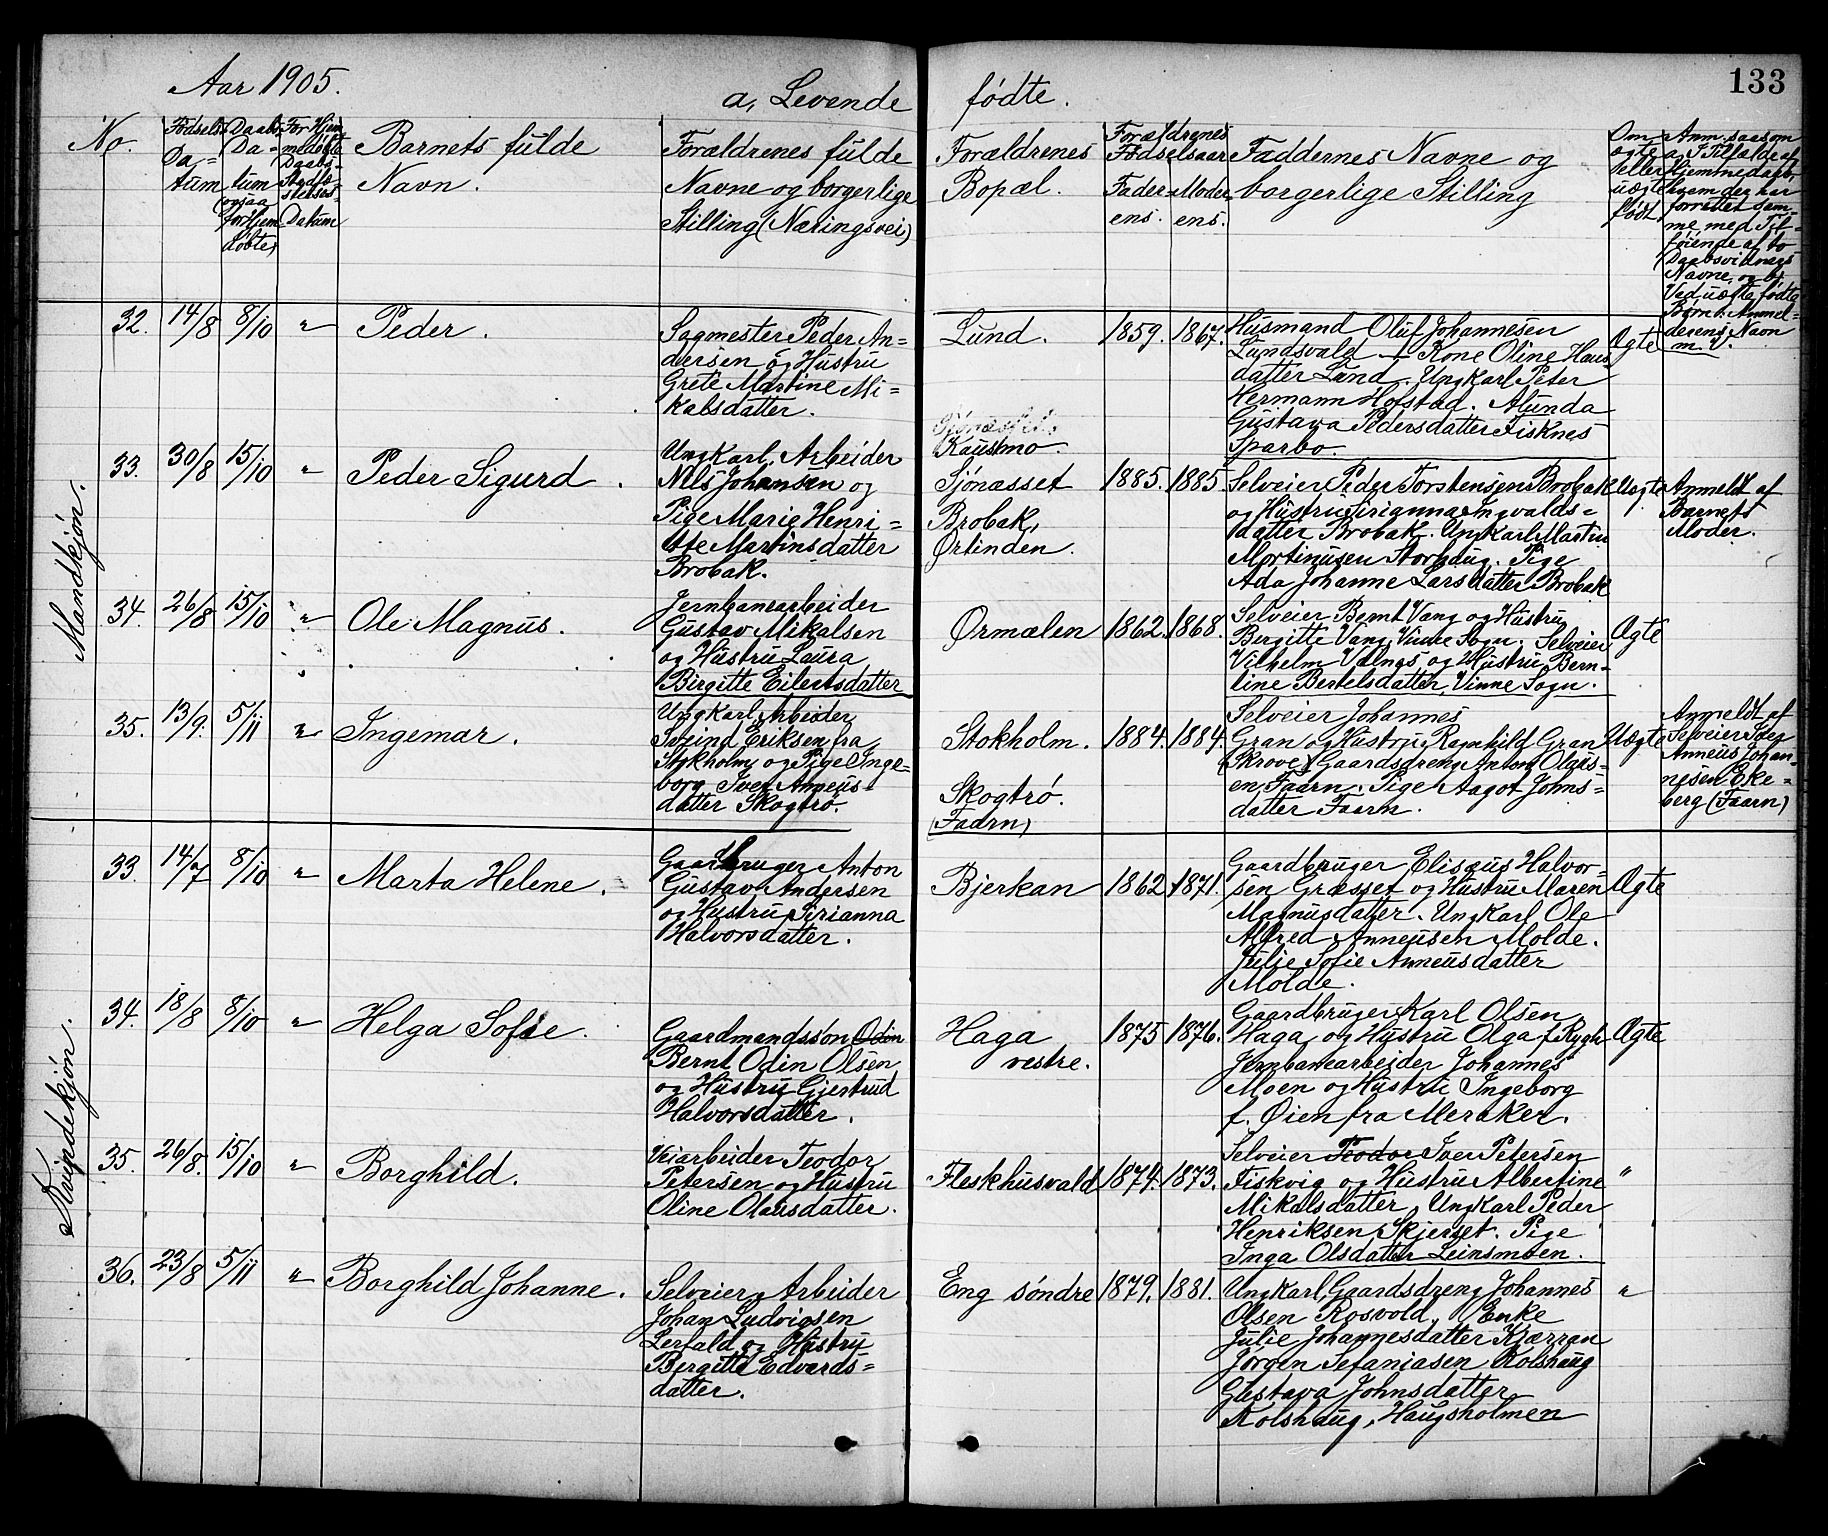 133
Aar 1905.
a, Levende fødte.
No.
Fødsels Da= tum
Daabs Da= tum (ogsaa for Hjem døbte)
For Hjem medøbte Daabs Stadfæ= stelses= Datum
Barnets fulde Navn.
Forældrenes fulde Navne og borgerlige Stilling (Næringsvei)
Forældrenes Bopæl.
Forældrenes Fødselsaar
Faderens. Moderens.
Faddernes Navne og borgerlige Stilling
Om ægte eller uægte født.
Anm. saasom a, I Tilfælde af Hjemmedaab, hvem der har forrettet sam= me med Til= føiende af to Daabsvidners Navne, og b, Ved uægte fødte Børn: Anmel= derens Navn m. V.
Mandkjøn.
32. 14/8 8/10 " Peder.
Sagmester Peder An=
dersen og Hustru
Grete Martine Mi=
kalsdatter.
Lund. 1859. 1867.
Husmand Oluf Johannesen
Lundsvald — Kone Oline Hans
datter Lund. Ungkarl Peter
Hermann Hofstad. Alunda
Gustava Pedersdatter Fisknes
Sparbo.
Ægte
33. 30/8 15/10 " Peder Sigurd.
Ungkarl, Arbeider
Nils Johansen og
Pige Marie Henri=
ette Martinsdatter
Brobak.
Kausmo.
Sjönæsset
Brobak,
Ørtinden.
1885. 1885.
Selveier Peder Torstensen Brobak
og Hustru Sirianna Ingvalds=
datter Brobak. Ungkarl Martin
Mortinusen Storhaug. Pige
Ada Johanne Larsdatter Brobak
Uægte
Anmeldt af
Barnets
Moder.
34. 26/8 15/10 " Ole Magnus.
Jernbanearbeider
Gustav Mikalsen
og Hustru Laura
Birgitte Eilertsdatter
Ørmælen 1862. 1868.
Selveier Bernt Vang og Hustru
Bergitte Vang, Vinne Sogn. Selveier
Vilhelm Valnes og Hustru Bern=
tine Bertelsdatter, Vinne Sogn.
Ægte
35. 13/9. 5/11 " Ingemar.
Ungkarl, Arbeider
Sveind Eriksen fra
Stokholm og Pige Inge=
borg Iver Anneus=
datter Skogtrö.
Stokholm.
Skogtrö.
(Faarn)
1884. 1884.
Selveier Johannes
Gran og Hustru Ragnhild Gran
(Skrove) Gaardsdreng Anton Olaus=
en, Faarn. Pige Aagot Johns=
datter Faarn.
Uægte
Anmeldt af
Selveier Iver
Anneus Johan=
nesen Eke=
berg (Faarn)
Kvindekjøn.
33. 14/7 8/10 " Marta Helene.
Gaardbruger Anton
Gustav Andersen
og Hustru Sirianna
Halvorsdatter.
Bjerkan 1862 1871.
Gaardbruger Elisæus Halvor=
sen Græsset og Hustru Maren
Magnusdatter. Ungkarl Ole
Alfred Anneusen Molde.
Julie Sofie Anneusdatter
Molde.
Ægte
34. 18/8 8/10 " Helga Sofie.
Gaardmandssön Odin
Bernt Odin Olsen
og Hustru Gjertrud
Halvorsdatter.
Haga
vestre.
1875 1876.
Gaardbruger Karl Olsen
Haga og Hustru Olga f. Rygh
Jernbanearbeider Johannes
Moen og Hustru Ingeborg
f. Øien fra Meraker.
Ægte
35. 26/8. 15/10 " Borghild.
Veiarbeider Teodor
Petersen og Hustru
Oline Olausdatter.
Fleskhusvald 1874. 1873.
Selveier Teodor Iver Petersen
Fiskvig og Hustru Albertine
Mikalsdatter, Ungkarl Peder
Henriksen Skjerset. Pige
Inga Olsdatter Leinsmoen.
"
36. 23/8 5/11 " Borghild Johanne.
Selveier, Arbeider
Johan Ludvigsen
Lerfald og Hustru
Bergitte Edvards=
datter.
Eng söndre 1879. 1881.
Ungkarl, Gaardsdreng Johannes
Olsen Rosvold, Enke
Julie Johannesdatter Kjærran
Jörgen Sefaniasen Kolshaug
Gustava Johnsdatter
Kolshaug, Haugsholmen
"